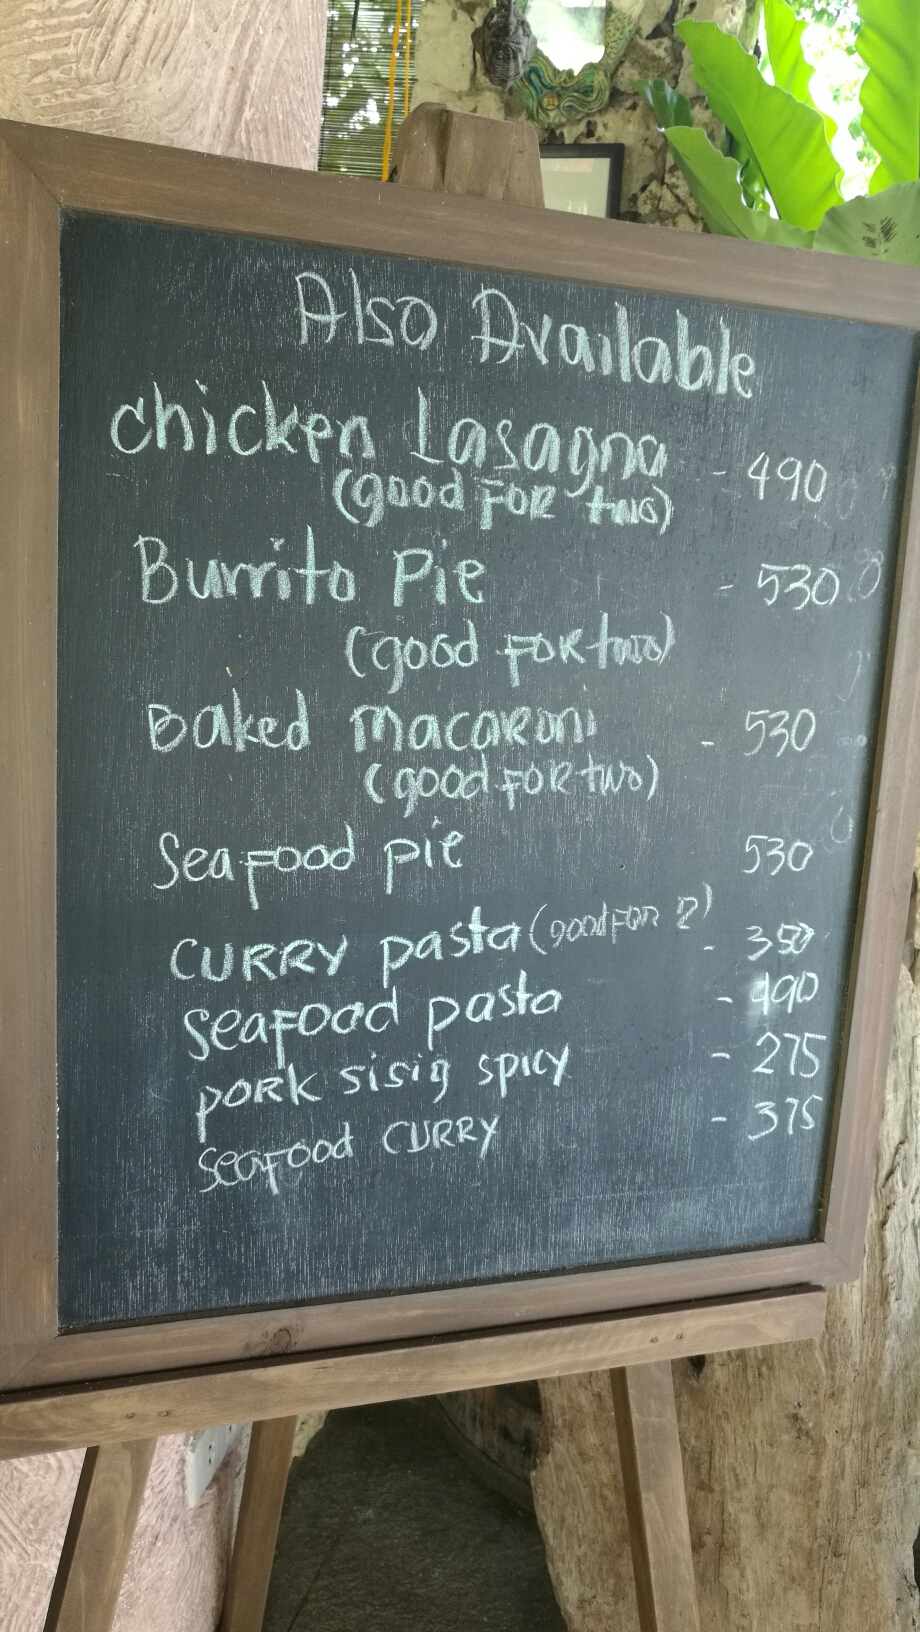 Also Available
chicken Lasagna - 490
(good FOR two)
Burrito Pie - 530
(good FOR two)
Baked macaroni - 530
(good FOR two)
Seafood pie 530
CURRY pasta (good FOR 2) - 350
seafood pasta - 490
pork sisig spicy - 275
seafood CURRY - 375